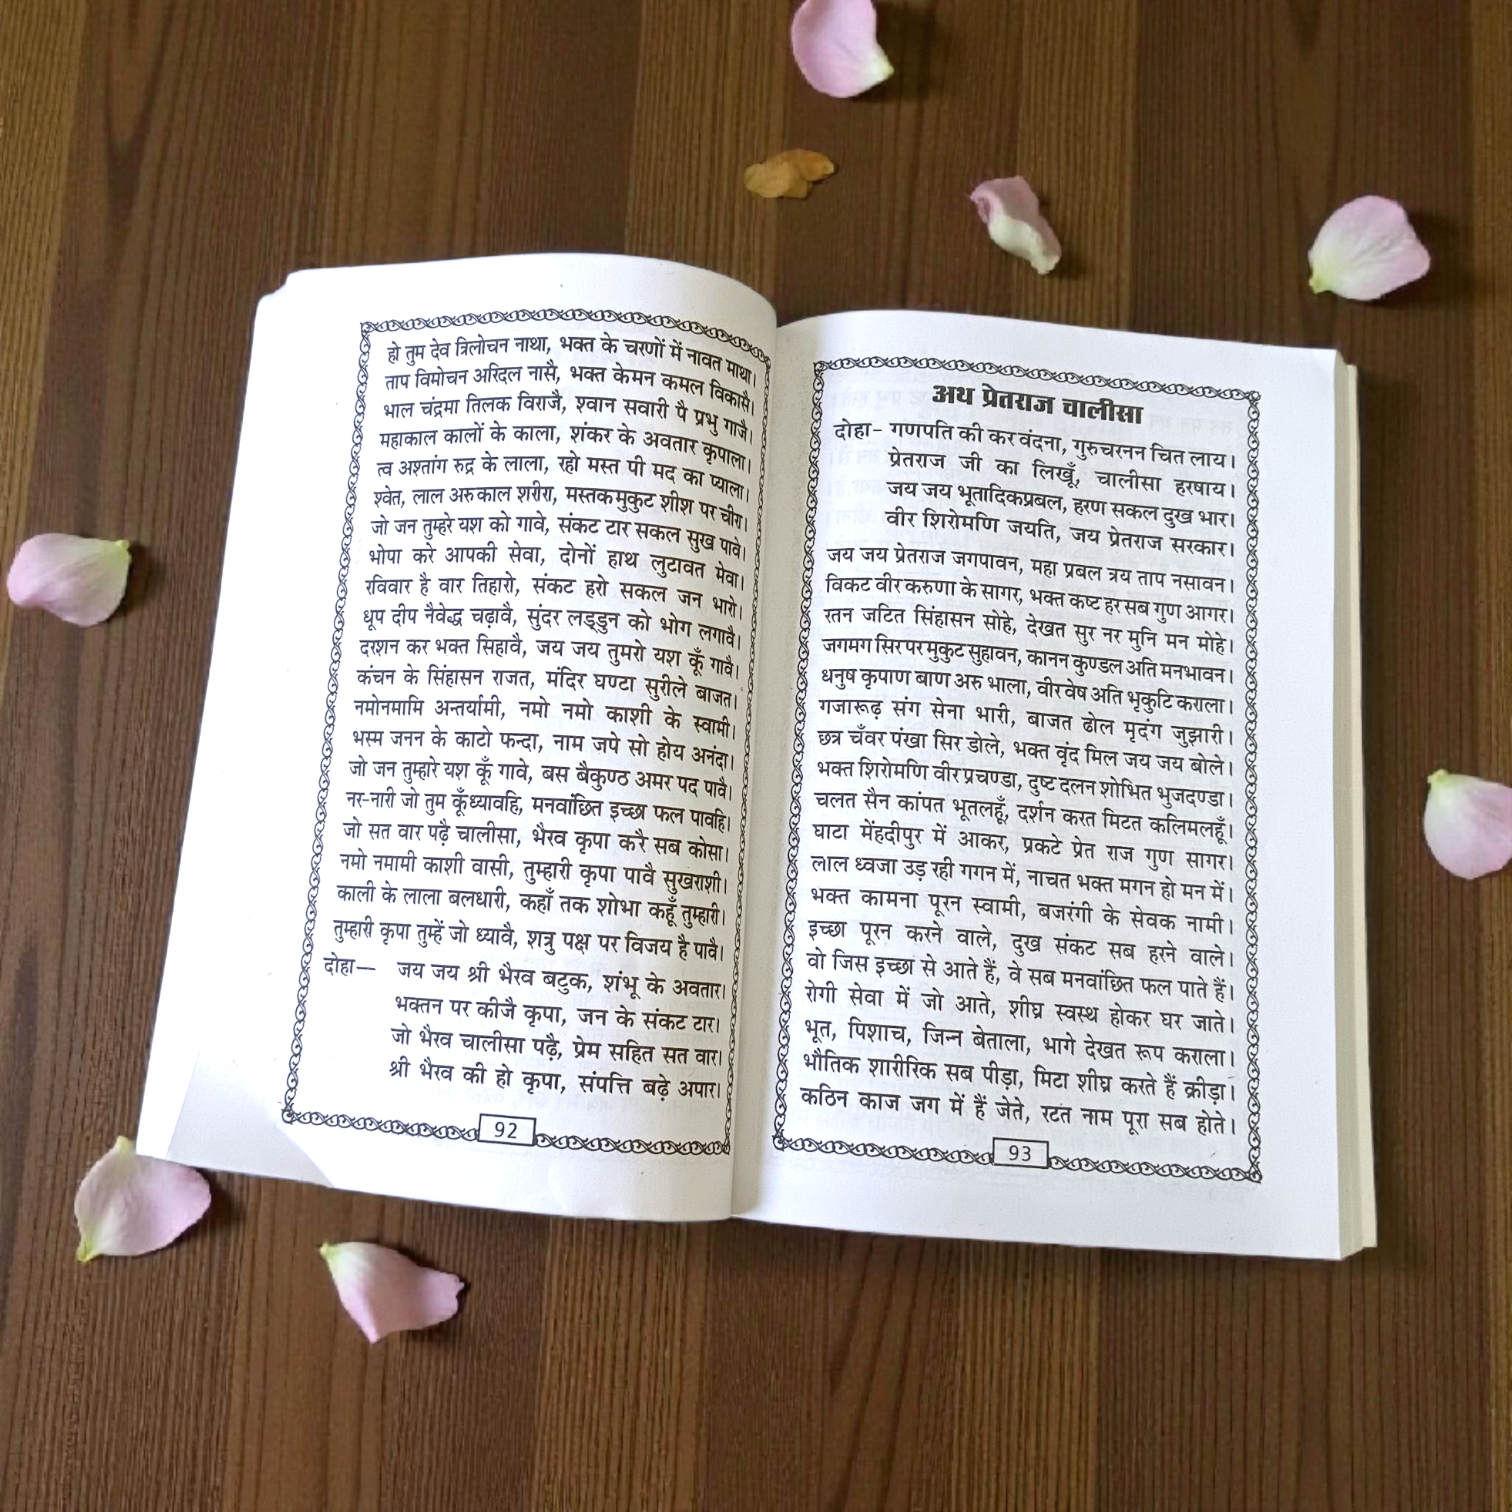 हो तुम देव त्रिलोचन नाथा, भक्त के चरणों में नावत माथा।
ताप विमोचन अरिदल नासै, भक्त केमन कमल विकासै।
भाल चंद्रमा तिलक विराजै, श्वान सवारी पै प्रभु गाजै।
महाकाल कालों के काला, शंकर के अवतार कृपाला।
त्व अश्तांग रुद्र के लाला, रहो मस्त पी मद का प्याला।
श्वेत, लाल अरु काल शरीरा, मस्तक मुकुट शीश पर चीरा।
जो जन तुम्हरे यश को गावे, संकट टार सकल सुख पावे।
भोपा करे आपकी सेवा, दोनों हाथ लुटावत मेवा।
रविवार है वार तिहारो, संकट हरो सकल जन भारो।
धूप दीप नैवेद्ध चढ़ावै, सुंदर लड्डुन को भोग लगावै।
दरशन कर भक्त सिहावै, जय जय तुमरो यश कूँ गावै।
कंचन के सिंहासन राजत, मंदिर घण्टा सुरीले बाजत।
नमोनमामि अन्तर्यामी, नमो नमो काशी के स्वामी।
भस्म जनन के काटो फन्दा, नाम जपे सो होय अनंदा।
जो जन तुम्हारे यश कूँ गावे, बस बैकुण्ठ अमर पद पावै।
नर-नारी जो तुम कूँध्यावहि, मनवांछित इच्छा फल पावहि।
जो सत वार पढ़ै चालीसा, भैरव कृपा करै सब कोसा।
नमो नमामी काशी वासी, तुम्हारी कृपा पावै सुखराशी।
काली के लाला बलधारी, कहाँ तक शोभा कहूँ तुम्हारी।
तुम्हारी कृपा तुम्हें जो ध्यावै, शत्रु पक्ष पर विजय है पावै।
दोहा— जय जय श्री भैरव बटुक, शंभू के अवतार।
भक्तन पर कीजै कृपा, जन के संकट टार।
जो भैरव चालीसा पढ़ै, प्रेम सहित सत वार।
श्री भैरव की हो कृपा, संपत्ति बढ़े अपार।
92
अथ प्रेतराज चालीसा
दोहा- गणपति की कर वंदना, गुरुचरनन चित लाय।
प्रेतराज जी का लिखूँ, चालीसा हरषाय।
जय जय भूतादिकप्रबल, हरण सकल दुख भार।
वीर शिरोमणि जयति, जय प्रेतराज सरकार।
जय जय प्रेतराज जगपावन, महा प्रबल त्रय ताप नसावन।
विकट वीर करुणा के सागर, भक्त कष्ट हर सब गुण आगर।
रतन जटित सिंहासन सोहे, देखत सुर नर मुनि मन मोहे।
जगमग सिर पर मुकुट सुहावन, कानन कुण्डल अति मनभावन।
धनुष कृपाण बाण अरु भाला, वीर वेष अति भृकुटि कराला।
गजारूढ़ संग सेना भारी, बाजत ढोल मृदंग जुझारी।
छत्र चँवर पंखा सिर डोले, भक्त वृंद मिल जय जय बोले।
भक्त शिरोमणि वीर प्रचण्डा, दुष्ट दलन शोभित भुजदण्डा।
चलत सैन कांपत भूतलहूँ, दर्शन करत मिटत कलिमलहूँ।
घाटा मेंहदीपुर में आकर, प्रकटे प्रेत राज गुण सागर।
लाल ध्वजा उड़ रही गगन में, नाचत भक्त मगन हो मन में।
भक्त कामना पूरन स्वामी, बजरंगी के सेवक नामी।
इच्छा पूरन करने वाले, दुख संकट सब हरने वाले।
वो जिस इच्छा से आते हैं, वे सब मनवांछित फल पाते हैं।
रोगी सेवा में जो आते, शीघ्र स्वस्थ होकर घर जाते।
भूत, पिशाच, जिन्न बेताला, भागे देखत रूप कराला।
भौतिक शारीरिक सब पीड़ा, मिटा शीघ्र करते हैं क्रीड़ा।
कठिन काज जग में हैं जेते, रटत नाम पूरा सब होते।
93